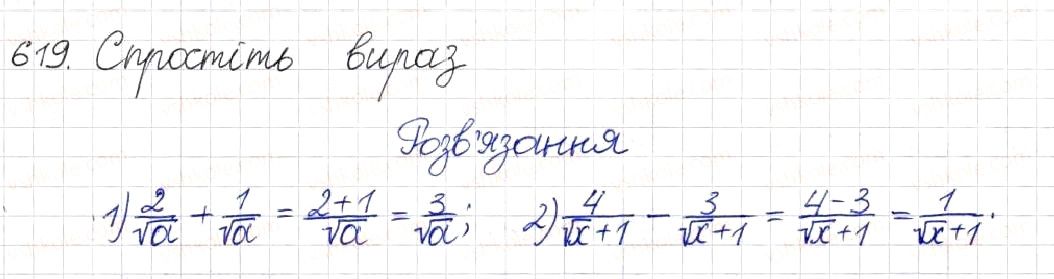 619. Спростіть вираз
Розв'язання
1) 2/√a + 1/√a = (2+1)/√a = 3/√a; 2) 4/(√x+1) − 3/(√x+1) = (4−3)/(√x+1) = 1/(√x+1).